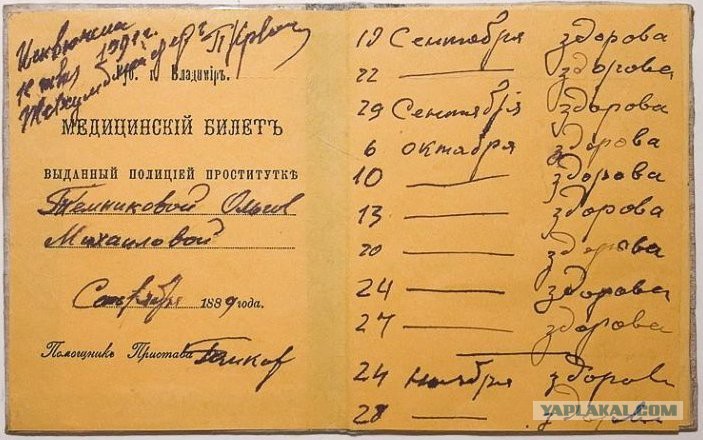 Губ. г. Владиміръ.
МЕДИЦИНСКІЙ БИЛЕТЪ
ВЫДАННЫЙ ПОЛИЦІЕЙ ПРОСТИТУТКѢ
Темниковой Ольгѣ
Михаиловой
Сентября 1889 года.
Помощникъ Пристава
19 Сентября здорова
22 — здорова
29 Сентября здорова
6 октября здорова
10 — здорова
13 — здорова
20 — здорова
24 — здорова
27 — здорова
24 ноября здорова
28 — здорова
YAPLAKAL.COM